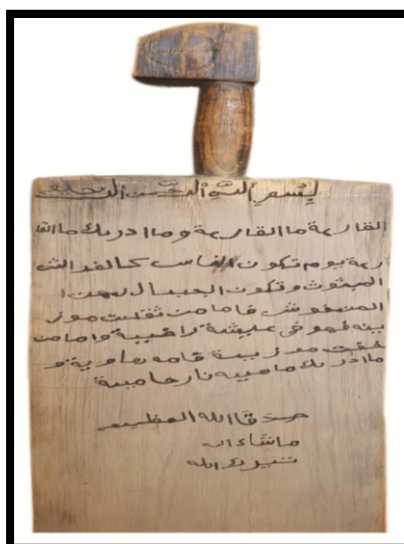 بسم الله الرحمن الرحيم
القارعة ما القارعة وما ادريك ما القا
رعة يوم تكون الناس كالفراش
المبثوث وتكون الجبال لعهن ا
المنفوش فاما من ثقلت موز
ينه فهو في عيشة راضية واما من
خفت موزينه فامه هاوية و
ما ادريك ماهيه نار حامية
صدق الله العظيم
ماشاء الله
تبرك الله